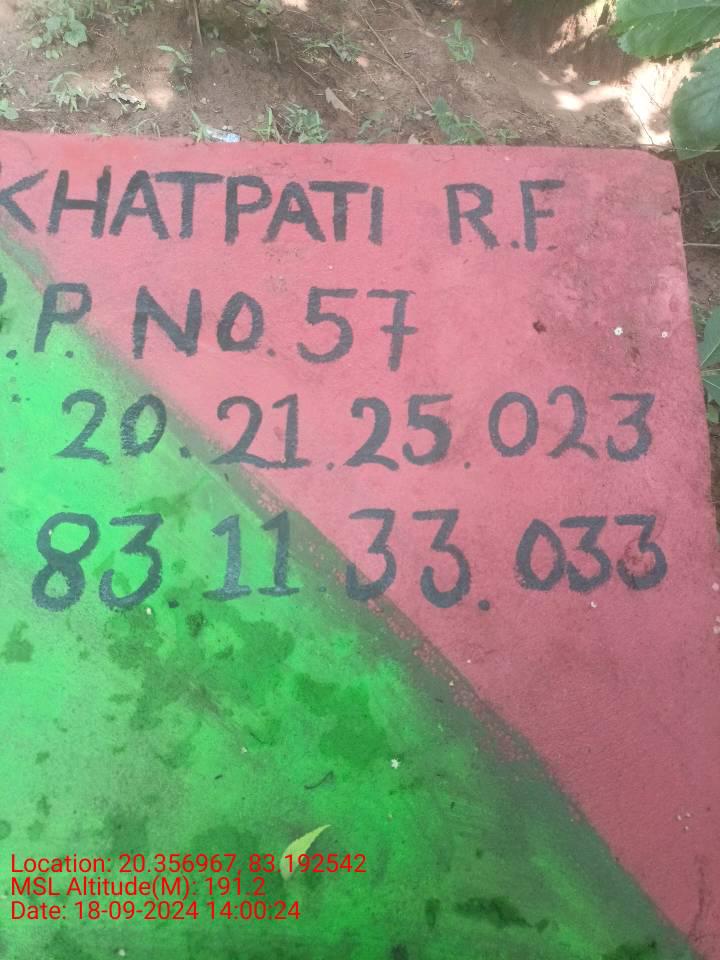 KHATPATI R.F.
.P. NO. 57
20.21.25.023
83.11.33.033
Location: 20.356967, 83.192542
MSL Altitude(M): 191.2
Date: 18-09-2024 14:00:24